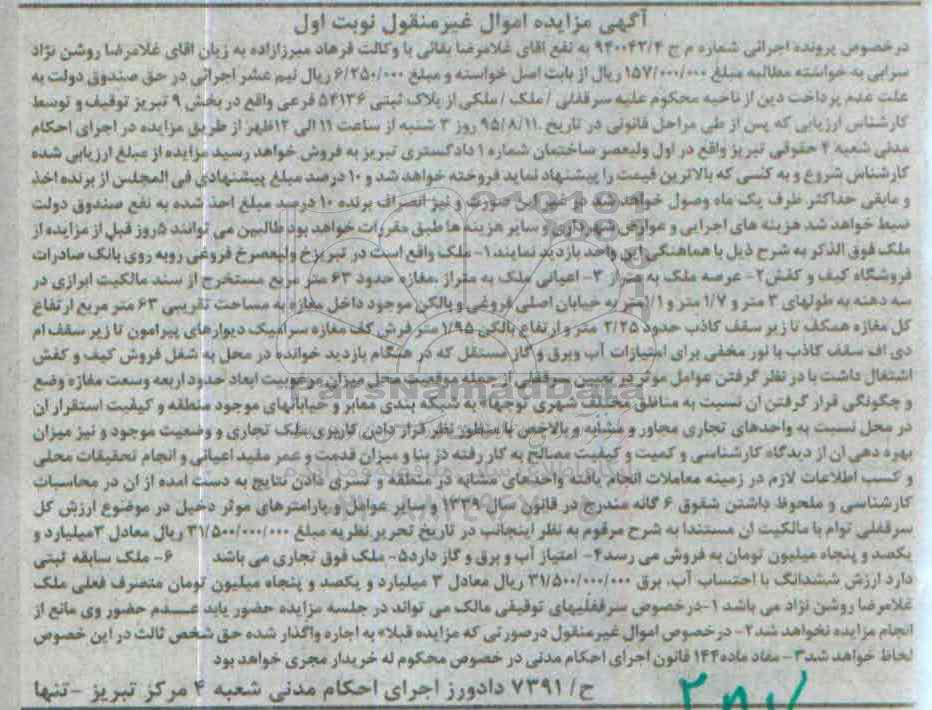 آگهی مزایده اموال غیرمنقول نوبت اول
درخصوص پرونده اجرائی شماره م ج ۹۴۰۰۴۳/۴ به نفع اقای غلامرضا بقائی با وکالت فرهاد میرزازاده به زیان اقای غلامرضا روشن نژاد
سرابی به خواسته مطالبه مبلغ ۱۵۷/۰۰۰/۰۰۰ ریال از بابت اصل خواسته و مبلغ ۶/۲۵۰/۰۰۰ ریال نیم عشر اجرائی در حق صندوق دولت به
علت عدم پرداخت دین از ناحیه محکوم علیه سرقفلی / ملک / ملکی از پلاک ثبتی ۵۴۱۳۶ فرعی واقع در بخش ۹ تبریز توقیف و توسط
کارشناس ارزیابی که پس از طی مراحل قانونی در تاریخ ۹۵/۸/۱۱ روز ۳ شنبه از ساعت ۱۱ الی ۱۲ظهر از طریق مزایده در اجرای احکام
مدنی شعبه ۴ حقوقی تبریز واقع در اول ولیعصر ساختمان شماره ۱ دادگستری تبریز به فروش خواهد رسید مزایده از مبلغ ارزیابی شده
کارشناس شروع و به کسی که بالاترین قیمت را پیشنهاد نماید فروخته خواهد شد و ۱۰ درصد مبلغ پیشنهادی فی المجلس از برنده اخذ
و مابقی حداکثر ظرف یک ماه وصول خواهد شد در غیر این صورت و نیز انصراف برنده ۱۰ درصد مبلغ اخذ شده به نفع صندوق دولت
ضبط خواهد شد هزینه های اجرایی و عوارض شهرداری و سایر هزینه ها طبق مقررات خواهد بود طالبین می توانند ۵روز قبل از مزایده از
ملک فوق الذکر به شرح ذیل با هماهنگی این واحد بازدید نمایند۱- ملک واقع است در تبریزخ ولیعصرخ فروغی روبه روی بانک صادرات
فروشگاه کیف و کفش۲- عرصه ملک به متراژ ۳- اعیانی ملک به متراژ .مغازه حدود ۶۳ متر مربع مستخرج از سند مالکیت ابرازی در
سه دهنه به طولهای ۳ متر و ۱/۷ متر و ۱/۱متر به خیابان اصلی فروغی و بالکن موجود داخل مغازه به مساحت تقریبی ۶۳ متر مربع ارتفاع
کل مغازه همکف تا زیر سقف کاذب حدود ۲/۲۵ متر و ارتفاع بالکن ۱/۹۵ متر فرش کف مغازه سرامیک دیوارهای پیرامون تا زیر سقف ام
دی اف سقف کاذب با نور مخفی برای امتیازات آب وبرق و گاز مستقل که در هنگام بازدید خوانده در محل به شغل فروش کیف و کفش
اشتغال داشت با در نظر گرفتن عوامل موثر در تعیین سرقفلی از جمله موقعیت محل میزان مرغوبیت ابعاد حدود اربعه وسعت مغازه وضع
و چگونگی قرار گرفتن ان نسبت به مناطق مختلف شهری توجها به شبکه بندی معابر و خیابانهای موجود منطقه و کیفیت استقرار ان
در محل نسبت به واحدهای تجاری مجاور و مشابه و بالاخص با منظور نظر قرار دادن کاربری ملک تجاری و وضعیت موجود و نیز میزان
بهره دهی ان از دیدگاه کارشناسی و کمیت و کیفیت مصالح به کار رفته در بنا و میزان قدمت و عمر مفید اعیانی و انجام تحقیقات محلی
و کسب اطلاعات لازم در زمینه معاملات انجام یافته واحدهای مشابه در منطقه و تسری دادن نتایج به دست آمده از ان در محاسبات
کارشناسی و ملحوظ داشتن شقوق ۶ گانه مندرج در قانون سال ۱۳۳۹ و سایر عوامل و پارامترهای موثر دخیل در موضوع ارزش کل
سرقفلی توام با مالکیت ان مستندا به شرح مرقوم به نظر اینجانب در تاریخ تحریر نظریه مبلغ ۳۱/۵۰۰/۰۰۰/۰۰۰ ریال معادل ۳میلیارد و
یکصد و پنجاه میلیون تومان به فروش می رسد۴- امتیاز آب و برق و گاز دارد۵- ملک فوق تجاری می باشد ۶- ملک سابقه ثبتی
دارد ارزش ششدانگ با احتساب آب، برق ۳۱/۵۰۰/۰۰۰/۰۰۰ ریال معادل ۳ میلیارد و یکصد و پنجاه میلیون تومان متصرف فعلی ملک
غلامرضا روشن نژاد می باشد ۱-درخصوص سرقفلیهای توقیفی مالک می تواند در جلسه مزایده حضور یابد عدم حضور وی مانع از
انجام مزایده نخواهد شد۲- درخصوص اموال غیرمنقول درصورتی که مزایده قبلا» به اجاره واگذار شده حق شخص ثالث در این خصوص
لحاظ خواهد شد۳- مفاد ماده۱۴۴ قانون اجرای احکام مدنی در خصوص محکوم له خریدار مجری خواهد بود
ح/ ۷۳۹۱ دادورز اجرای احکام مدنی شعبه ۴ مرکز تبریز -تنها
ParsNamadData